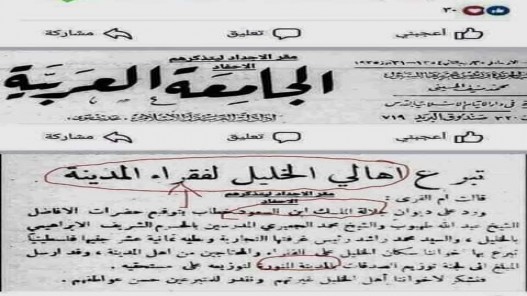 ٣٠
أعجبني تعليق مشاركة
مقر الاجداد ليتذكرهم
الاحفاد
الجامعة العربية
صندوق البريد ٧١٩
أعجبني تعليق مشاركة
تبرع اهالي الخليل لفقراء المدينة
مقر الاجداد ليتذكرهم
الاحفاد
قالت أم القرى :
ورد على ديوان جلالة الملك ابن السعود خطاب بتوقيع حضرات الافاضل
الشيخ عبد الله طهبوب والشيخ محمد الجعبري المدرسين بالحرم الشريف الابراهيمي
بالخليل ، والسيد محمد راشد رئيس غرفتها التجارية وعليه ثمانية عشر جنيها فلسطينيا
تبرع بها اخواننا سكان الخليل على الفقراء والمحتاجين من اهل المدينة ، وقد ارسل
المبلغ الى لجنة توزيع الصدقات بالمدينة المنورة لتوزيعه على مستحقيه .
فنشكر لاخواننا أهل الخليل غيرتهم ونقدر للمتبرعين حسن عواطفهم .